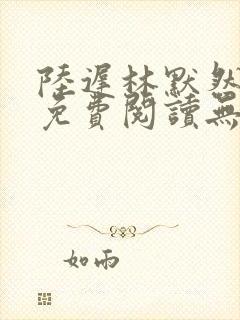 陸遲林默然
免費閱讀無
如雨